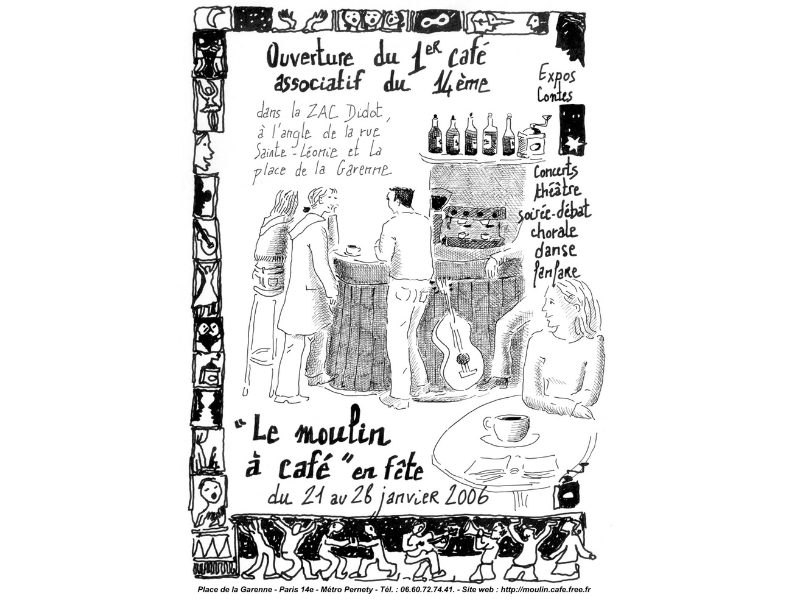 Ouverture du 1ER café
associatif du 14ème
dans la ZAC Didot,
à l'angle de la rue
Sainte-Léonie et la
place de la Garenne
Expos
Contes
Concerts
théâtre
soirée-débat
chorale
danse
fanfare
"Le moulin
à café" en fête
du 21 au 28 janvier 2006
Place de la Garenne - Paris 14e - Métro Pernety - Tél. : 06.60.72.74.41. - Site web : http://moulin.cafe.free.fr